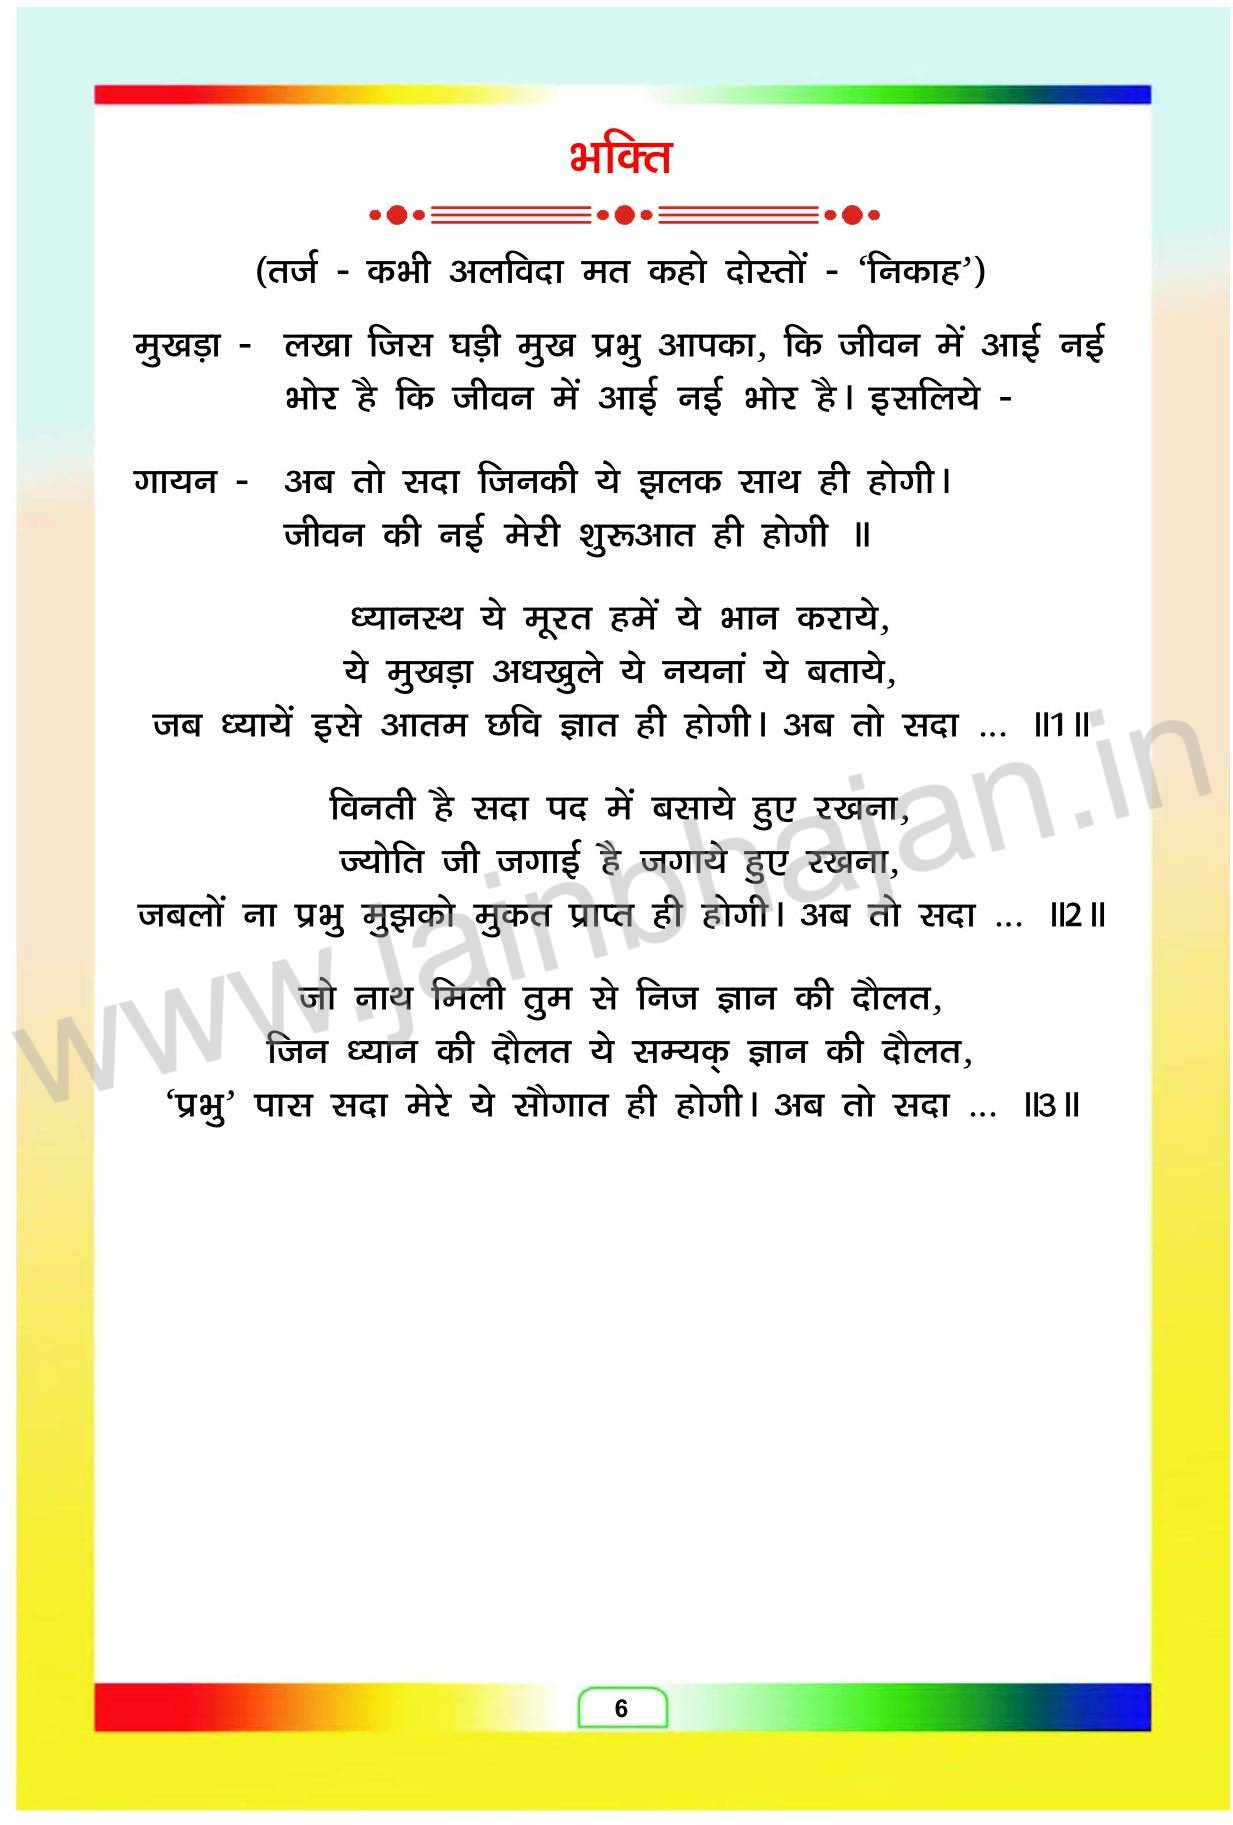 भक्ति
(तर्ज - कभी अलविदा मत कहो दोस्तों - ‘निकाह’)
मुखड़ा - लखा जिस घड़ी मुख प्रभु आपका, कि जीवन में आई नई
भोर है कि जीवन में आई नई भोर है। इसलिये -
गायन - अब तो सदा जिनकी ये झलक साथ ही होगी।
जीवन की नई मेरी शुरूआत ही होगी ॥
ध्यानस्थ ये मूरत हमें ये भान कराये,
ये मुखड़ा अधखुले ये नयनां ये बताये,
जब ध्यायें इसे आतम छवि ज्ञात ही होगी। अब तो सदा ... ॥1॥
विनती है सदा पद में बसाये हुए रखना,
ज्योति जी जगाई है जगाये हुए रखना,
जबलों ना प्रभु मुझको मुकत प्राप्त ही होगी। अब तो सदा ... ॥2॥
जो नाथ मिली तुम से निज ज्ञान की दौलत,
जिन ध्यान की दौलत ये सम्यक् ज्ञान की दौलत,
‘प्रभु’ पास सदा मेरे ये सौगात ही होगी। अब तो सदा ... ॥3॥
www.jainbhajan.in
6